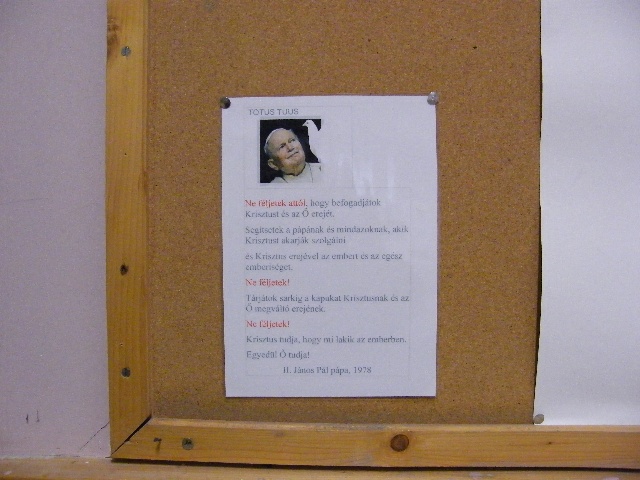 TOTUS TUUS
Ne féljetek attól, hogy befogadjátok
Krisztust és az Ő erejét.
Segítsetek a pápának és mindazoknak, akik
Krisztust akarják szolgálni
és Krisztus erejével az embert és az egész
emberiséget.
Ne féljetek!
Tárjátok sarkig a kapukat Krisztusnak és az
Ő megváltó erejének.
Ne féljetek!
Krisztus tudja, hogy mi lakik az emberben.
Egyedül Ő tudja!
II. János Pál pápa, 1978
7